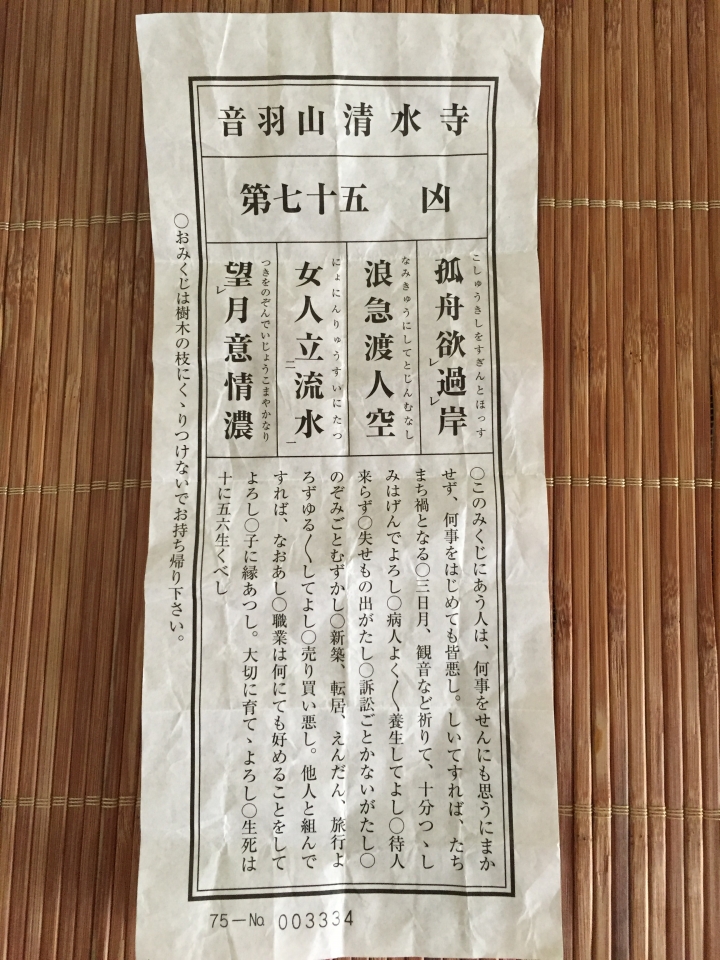 音羽山清水寺
第七十五　凶
こしゅうきしをすぎんとほっす
孤舟欲レ過レ岸
なみきゅうにしてとじんむなし
浪急渡人空
にょにんりゅうすいにたつ
女人立二流水一
つきをのぞんでいじょうこまやかなり
望レ月意情濃
〇このみくじにあう人は、何事をせんにも思うにまか
せず、何事をはじめても皆悪し。しいてすれば、たち
まち禍となる〇三日月、観音など祈りて、十分つゝし
みはげんでよろし〇病人よく〱養生してよし〇待人
来らず〇失せもの出がたし〇訴訟ごとかないがたし〇
のぞみごとむずかし〇新築、転居、えんだん、旅行よ
ろずゆる〱してよし〇売り買い悪し。他人と組んで
すれば、なおあし〇職業は何にても好めることをして
よろし〇子に縁あつし。大切に育てゝよろし〇生死は
十に五六生くべし
〇おみくじは樹木の枝にくゝりつけないでお持ち帰り下さい。
75－No. 003334